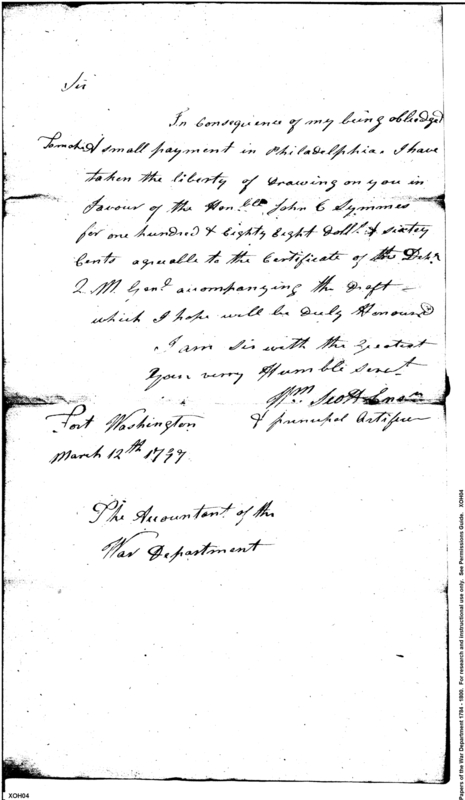 Sir
In Consequence of my being obliedged
to make A small payment in Philadelphia. I have
taken the liberty of Drawing on you in
favour of the Hon.ble John C Symmes
for one hundred & Eighty Eight Doll.s & sixtey
Cents agreable to the Certificate of the Dep.y
Q. M. Gen.l accompanying the Draft –
which I hope will be Duly Honoured
I am Sir with the Greatest
Your verry Humble serv.t
Wm. Scott Ens.n
& principal Artificer
Fort Washington
March 12th 1797
The Accountant of the
War Department
Papers of the War Department 1784 - 1800. For research and instructional use only. See Permissions Guide. XOH04
XOH04